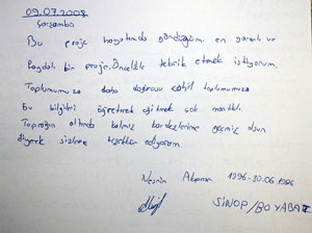 09.07.2008
Çarşamba
Bu proje hayatımda gördüğüm en yararlı ve
faydalı bir proje. Öncelikle tebrik etmek istiyorum.
Toplumumuza daha doğrusu cahil toplumumuza
bu bilgileri öğretmek eğitmek çok mantıklı.
Toprağın altında kalmış kardeşlerime geçmiş olsun
diyerek sizlere teşekkür ediyorum.
Nesrin 1996-30.06.1996
SİNOP/BOYABAT